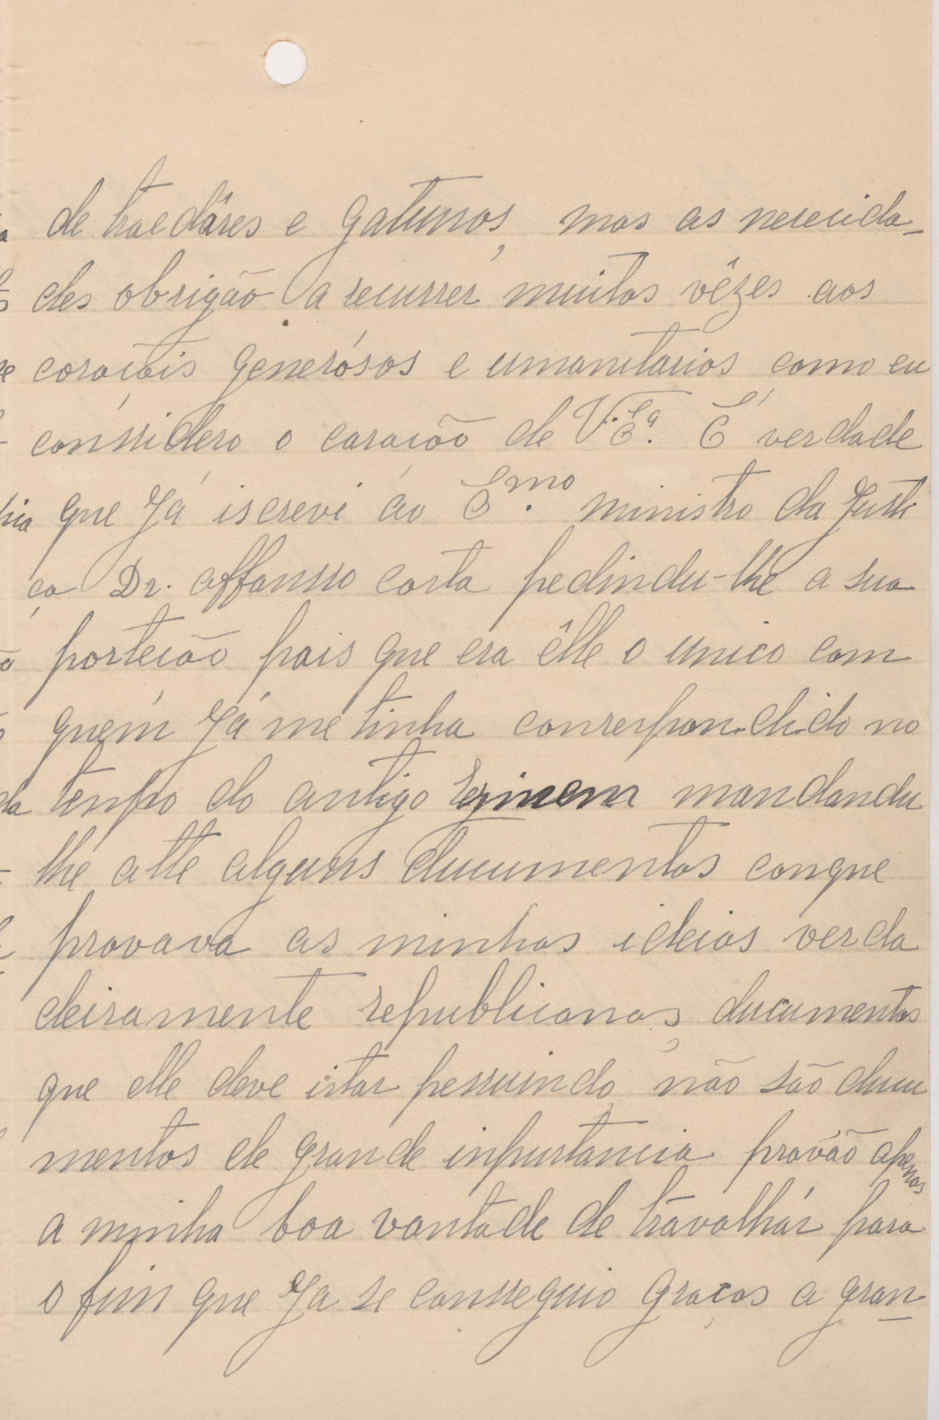 de traedôres e gatunos, mas as nececida-
des obrigão a recurrer muitas vêzes aos
coraçõis generósos e umanitarios como eu
conssidero o coração de V. Eª. É verdade
que Já iscrevi áo Ex.mo ministro da Justi
ça Dr. affonsso costa pedindu-lhe a sua
porteção pois que era êlle o unico com
quem Já me tinha conrespondido no
tenpo do antigo regimem mandandu
lhe atté alguns ducumentos conque
provava as minhas ideias verda
deiramente republicanas, ducumentos
que elle deve istar pessuindo, não são ducu
mentos de grande inpurtancia provão apenas
a minha boa vontade de travalhár para
o fim que Ja se consseguio graças a gran-